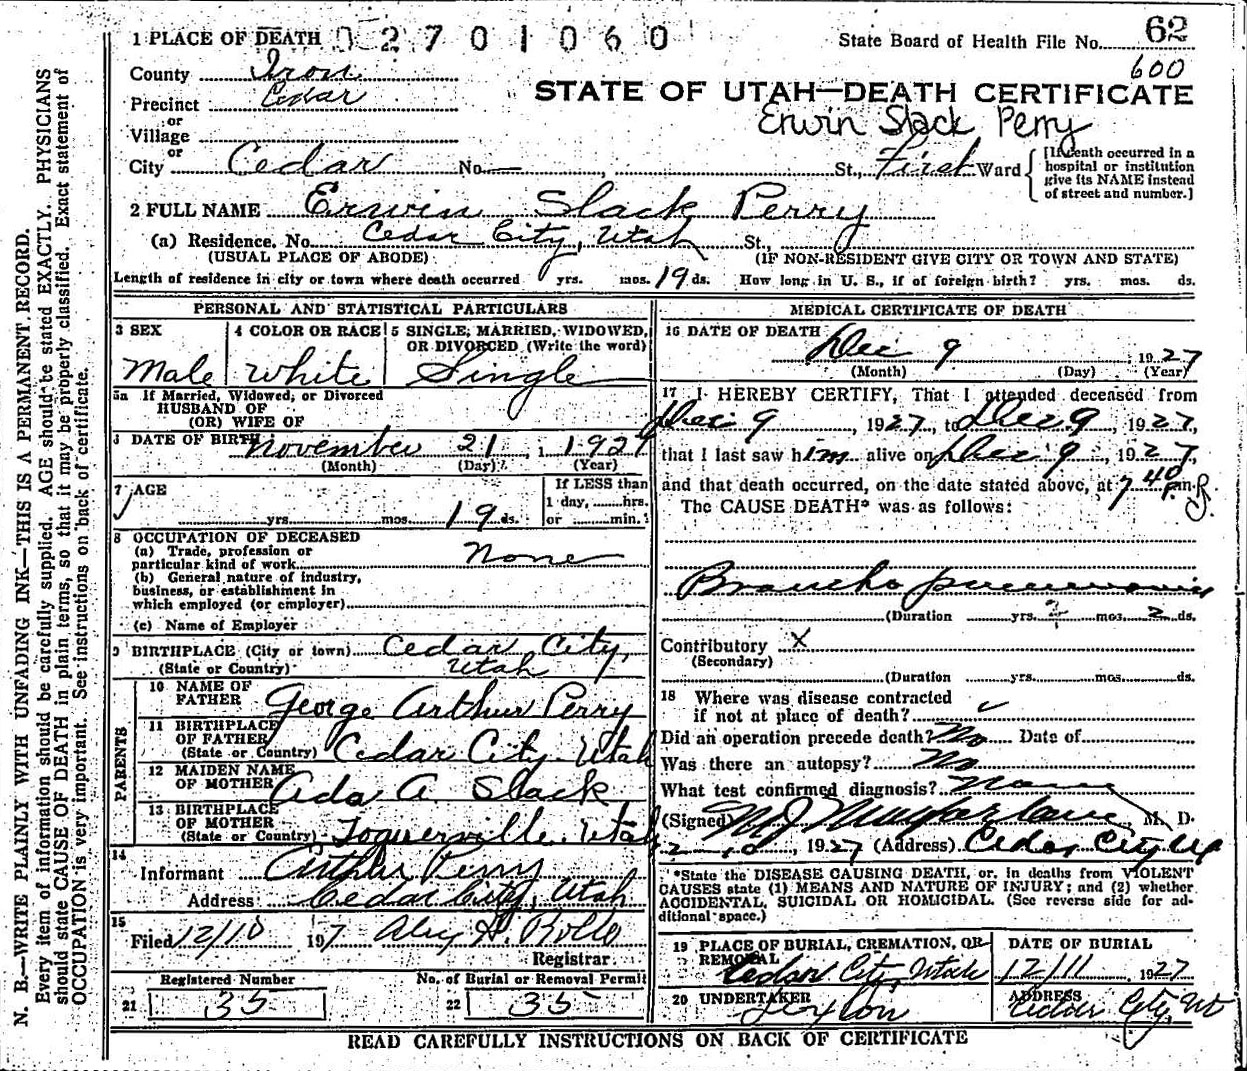 1 PLACE OF DEATH 0 2 7 0 1 0 6 0
State Board of Health File No. 62
600
County Iron
Precinct Cedar
or
Village
or
City Cedar No. — , St., First Ward
STATE OF UTAH—DEATH CERTIFICATE
Erwin Slack Perry
[If death occurred in a
hospital or institution
give its NAME instead
of street and number.]
2 FULL NAME Erwin Slack Perry
(a) Residence. No. Cedar City, Utah St.,
(USUAL PLACE OF ABODE) (IF NON-RESIDENT GIVE CITY OR TOWN AND STATE)
Length of residence in city or town where death occurred yrs. mos. 19 ds. How long in U. S., if of foreign birth? yrs. mos. ds.
PERSONAL AND STATISTICAL PARTICULARS
3 SEX
Male
4 COLOR OR RACE
White
5 SINGLE, MARRIED, WIDOWED,
OR DIVORCED (Write the word)
Single
5a If Married, Widowed, or Divorced
HUSBAND OF
(OR) WIFE OF
6 DATE OF BIRTH November 21, 1927
(Month) (Day) (Year)
7 AGE
yrs. mos. 19 ds.
If LESS than
1 day, hrs.
or min.
8 OCCUPATION OF DECEASED
(a) Trade, profession or
particular kind of work None
(b) General nature of industry,
business, or establishment in
which employed (or employer)
(c) Name of Employer
9 BIRTHPLACE (City or town) Cedar City,
(State or Country) Utah
PARENTS
10 NAME OF
FATHER George Arthur Perry
11 BIRTHPLACE
OF FATHER
(State or Country) Cedar City Utah
12 MAIDEN NAME
OF MOTHER Ada A Slack
13 BIRTHPLACE
OF MOTHER
(State or Country) Toquerville Utah
14
Informant Arthur Perry
Address Cedar City, Utah
15
Filed 12/10 1927
Registrar
Registered Number
21 35
No. of Burial or Removal Permit
22 35
MEDICAL CERTIFICATE OF DEATH
16 DATE OF DEATH
Dec 9 1927
(Month) (Day) (Year)
17 I HEREBY CERTIFY, That I attended deceased from
Dec 9, 1927, to Dec 9, 1927,
that I last saw him alive on Dec 9, 1927,
and that death occurred, on the date stated above, at 7 40 P.m.
The CAUSE DEATH* was as follows:
Broncho pneumonia
(Duration yrs. mos. 2 ds.
Contributory X
(Secondary)
(Duration yrs. mos. ds.
18 Where was disease contracted
if not at place of death?
Did an operation precede death? No Date of
Was there an autopsy? No
What test confirmed diagnosis? None
(Signed) M. D.
12-10, 1927 (Address) Cedar City Ut
*State the DISEASE CAUSING DEATH, or, in deaths from VIOLENT
CAUSES state (1) MEANS AND NATURE OF INJURY; and (2) whether
ACCIDENTAL, SUICIDAL OR HOMICIDAL. (See reverse side for ad-
ditional space.)
19 PLACE OF BURIAL, CREMATION, OR
REMOVAL
Cedar City, Utah
DATE OF BURIAL
12/11 1927
20 UNDERTAKER
ADDRESS
Cedar City, Ut
READ CAREFULLY INSTRUCTIONS ON BACK OF CERTIFICATE
N. B.—WRITE PLAINLY WITH UNFADING INK—THIS IS A PERMANENT RECORD.
Every item of information should be carefully supplied. AGE should be stated EXACTLY. PHYSICIANS
should state CAUSE OF DEATH in plain terms, so that it may be properly classified. Exact statement of
OCCUPATION is very important. See instructions on back of certificate.